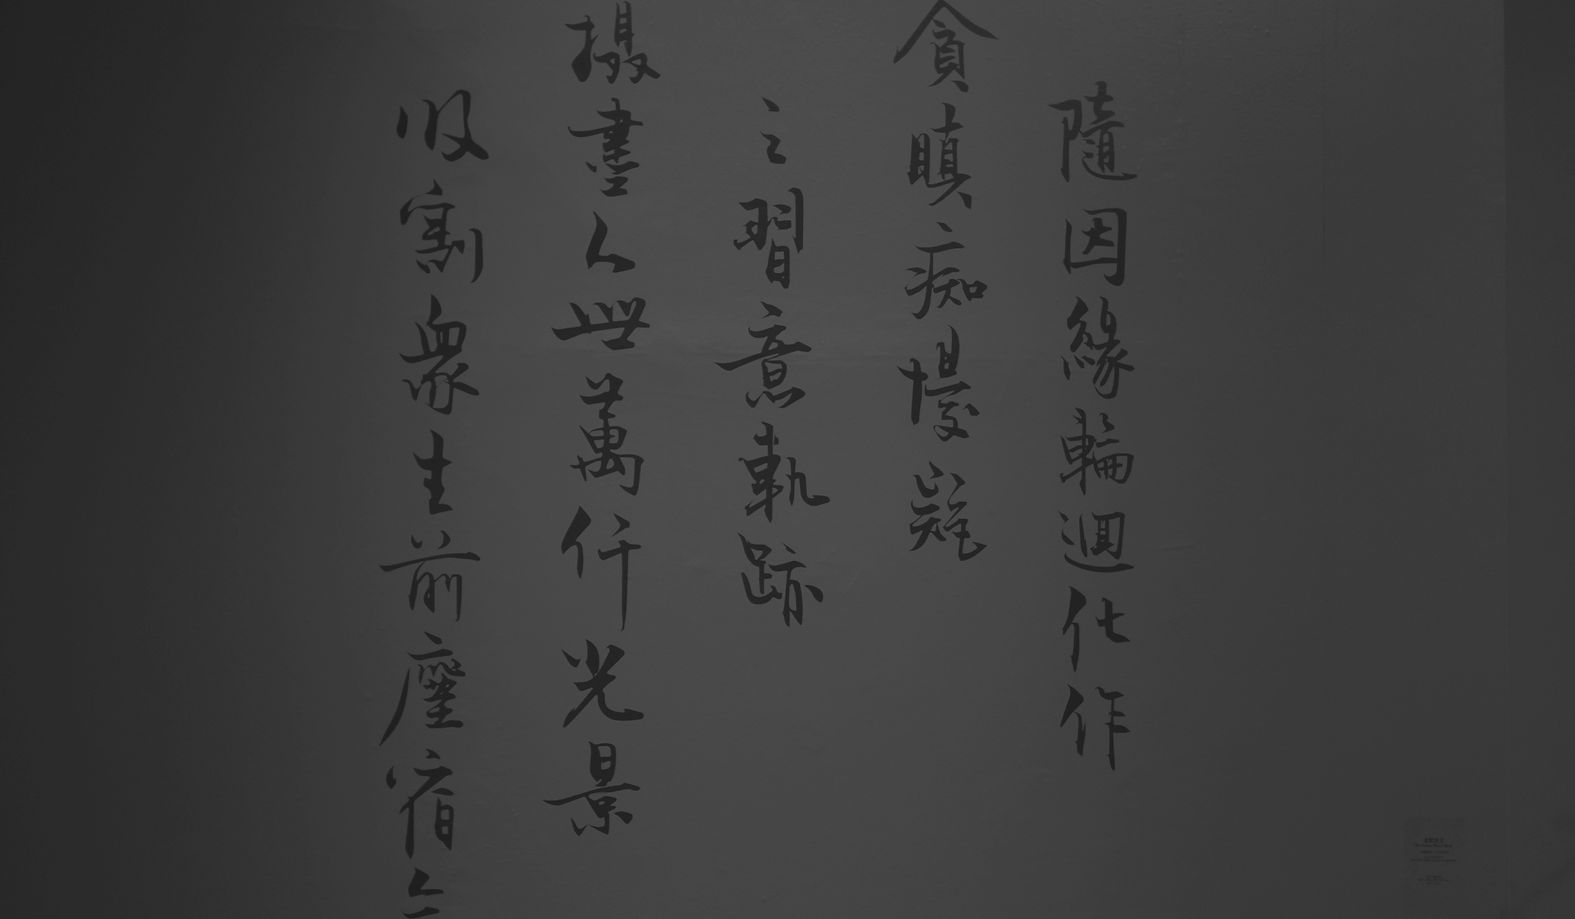 隨因緣輪迴化作
貪瞋痴慢疑
之習意軌跡
攝盡人世萬仟光景
收割眾生前塵宿